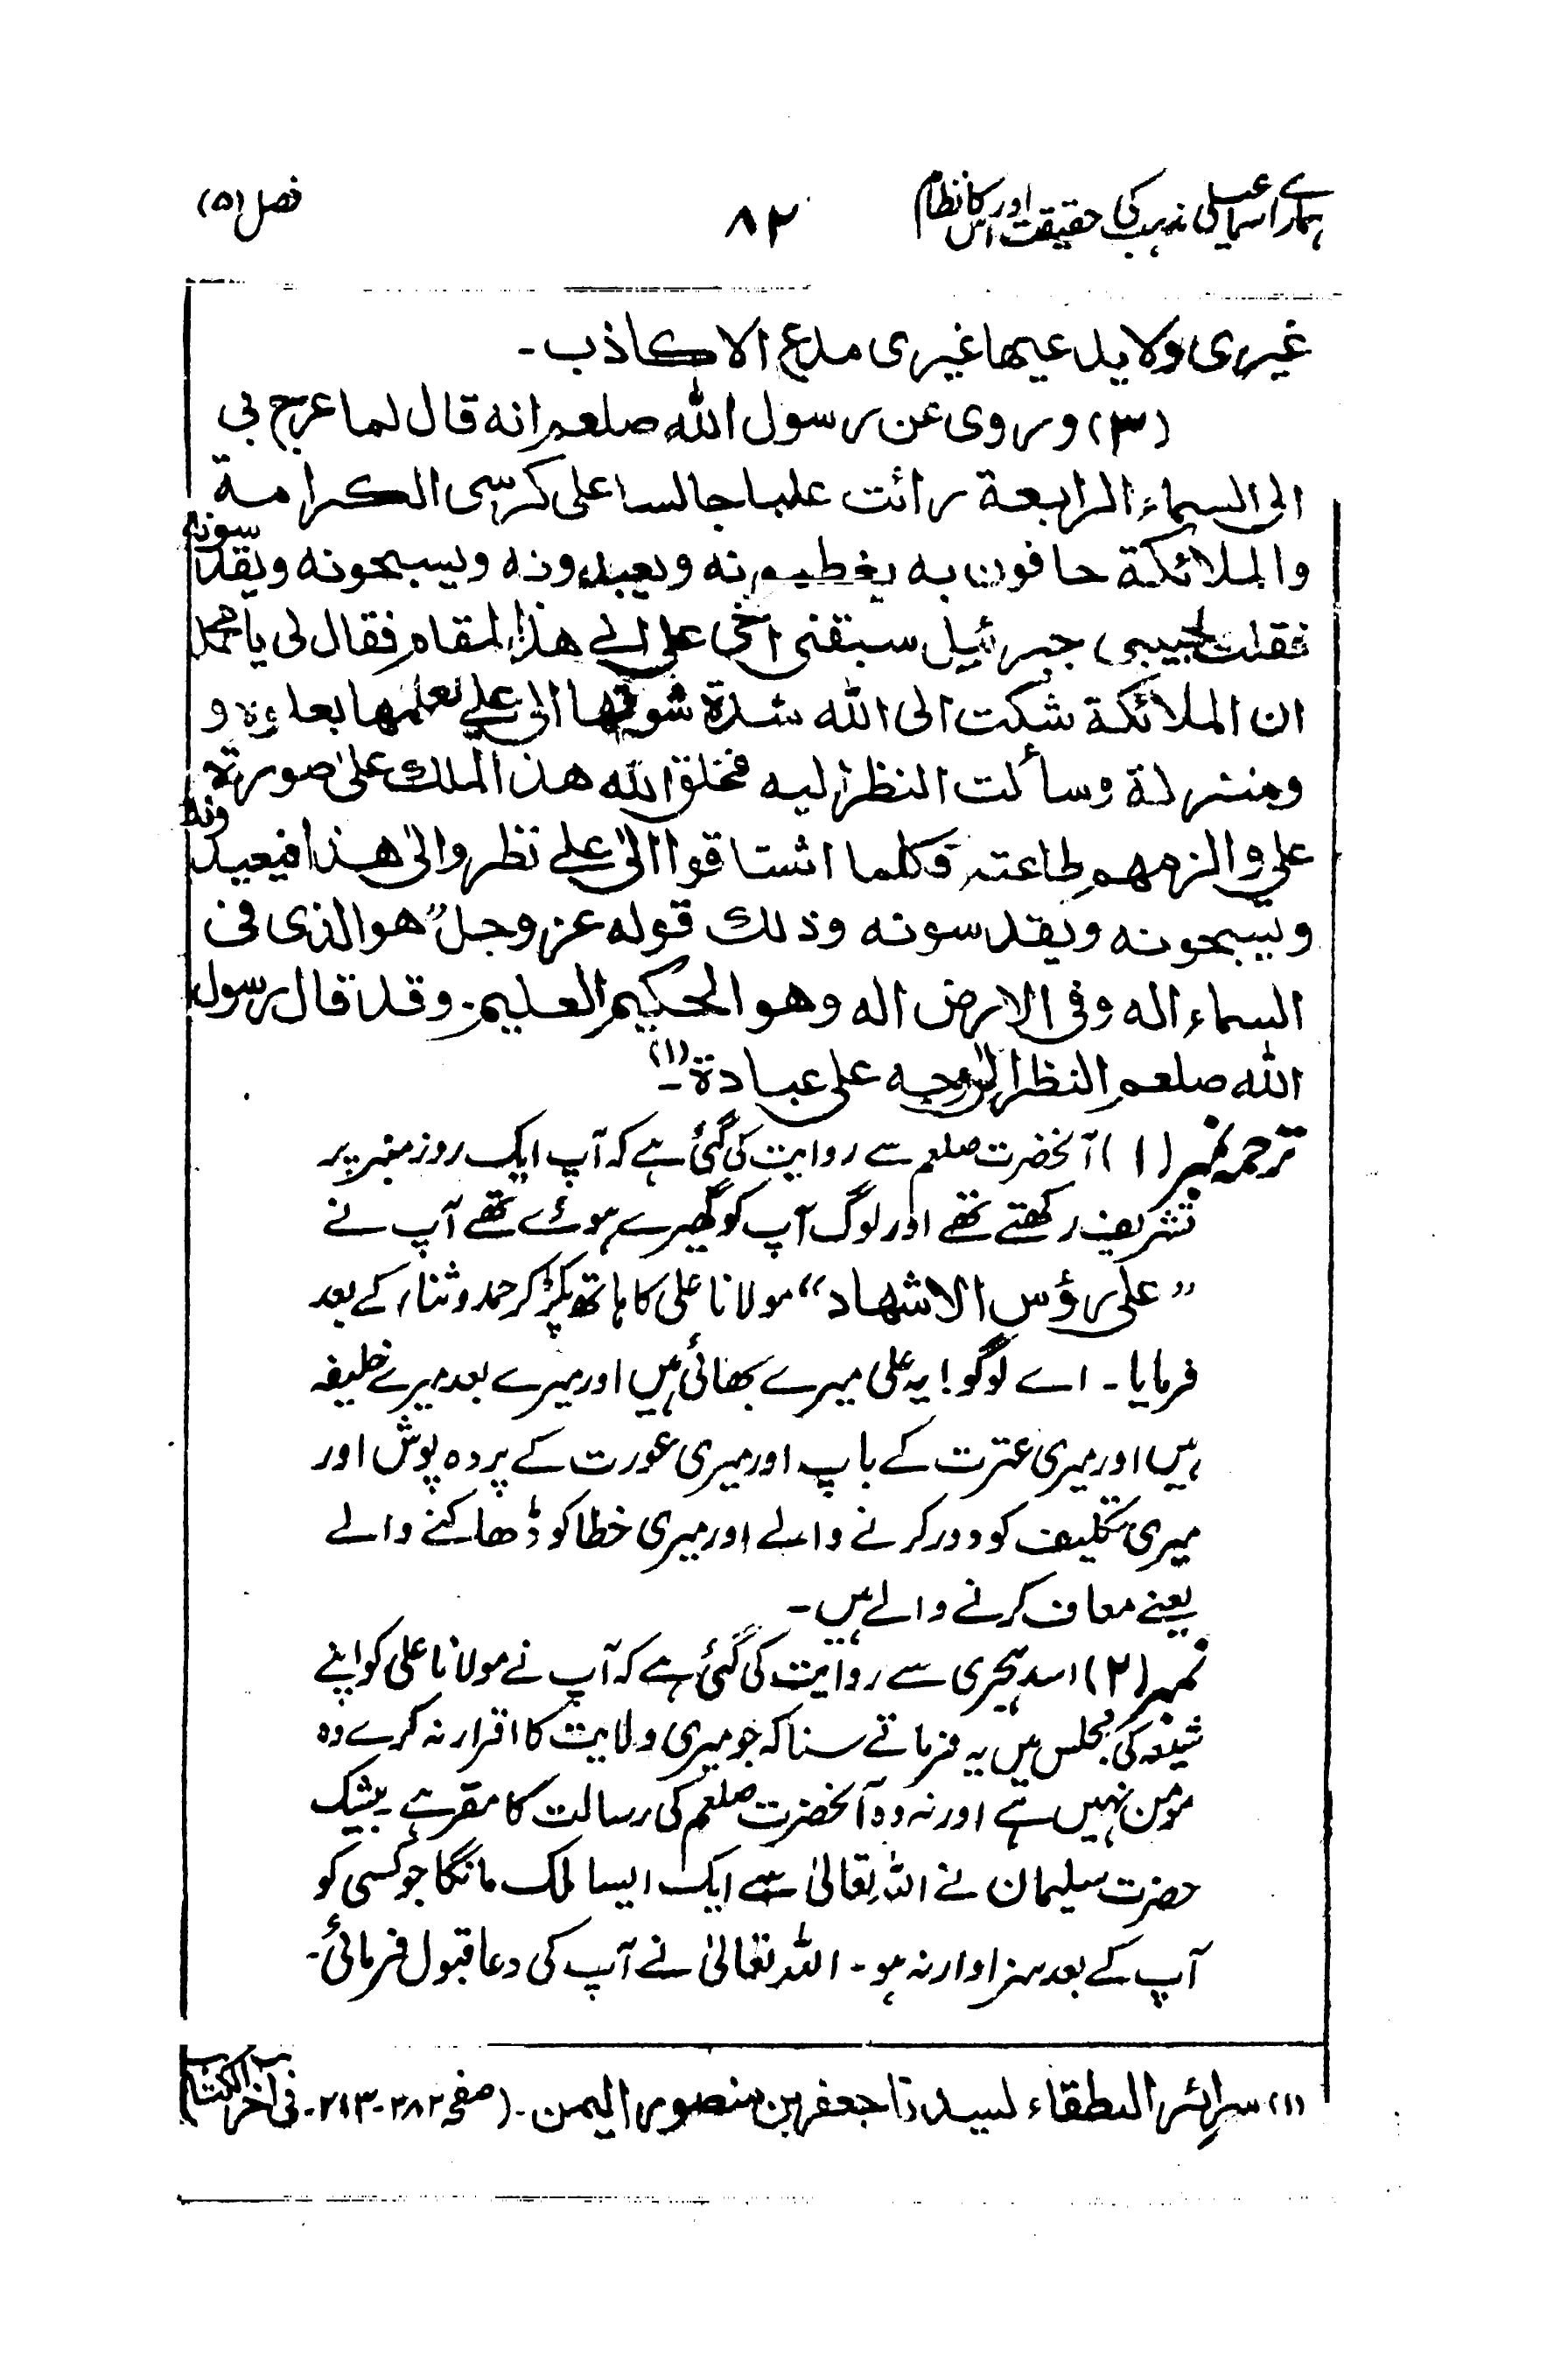 ہمارے اسماعیلی مذہب کی حقیقت اور اس کا نظام
۸۲
فصل (۵)
غیری ولا یدعیھا غیری مدع الا کاذب۔
(۳) وروی عن رسول اللہ صلعم انہ قال لما عرج بی
الی السماء الرابعۃ رائت علیا جالسا علی کرسی الکرامۃ
والملائکۃ حافون بہ یغطیمونہ ویعبدونہ ویسبحونہ ویقدسونہ
فقلت حبیبی جبرئیل سبقنی اخی علی الی ھذا المقام فقال لی یا محمد
ان الملائکۃ شکت الی اللہ شدۃ شوقھا الی علی لعلمھا بعلوہ و
ومنزلۃ وسألت النظر الیہ فخلق اللہ ھذا الملک علیٰ صورۃ
علی والزمھم طاعتہ فکلما اشتاقوا الیٰ علی نظروا لیٰ ھذا فیعبدونہ
ویسبحونہ ویقدسونہ وذلک قولہ عزوجل "ھو الذی فی
السماء الہ وفی الارض الہ وھو الحکیم العلیم۔ وقد قال رسول
اللہ صلعم النظر الیٰ وجہ علی عبادۃ۔(۱)
ترجمہ نمبر (۱) آنحضرت صلعم سے روایت کی گئی ہے کہ آپ ایک روز منبر پر
تشریف رکھتے تھے اور لوگ آپ کو گھیرے ہوئے تھے آپ نے
"علی رؤس الاشھاد" مولانا علی کا ہاتھ پکڑ کر حمد و ثناء کے بعد
فرمایا۔ اے لوگو! یہ علی میرے بھائی ہیں اور میرے بعد میرے خلیفہ
ہیں اور میری عترت کے باپ اور میری عورت کے پردہ پوش اور
میری تکلیف کو دور کرنے والے اور میری خطا کو ڈھاکنے والے
یعنے معاف کرنے والے ہیں۔
نمبر (۲) اسد ہجری سے روایت کی گئی ہے کہ آپ نے مولانا علی کو اپنے
شیعہ کی مجلس میں یہ فرماتے سنا کہ جو میری ولایت کا اقرار نہ کرے وہ
مومن نہیں ہے اور نہ وہ آنحضرت صلعم کی رسالت کا مقر ہے بیشک
حضرت سلیمان نے اللہ تعالیٰ سے ایک ایسا ملک مانگا جو کسی کو
آپ کے بعد سزاوار نہ ہو۔ اللہ تعالیٰ نے آپ کی دعا قبول فرمائی۔
(۱) سرائر النطقاء لسیدنا جعفر بن منصور الیمن۔ (صفحہ ۲۸۲-۲۱۳۔ فی آخر الکتاب)